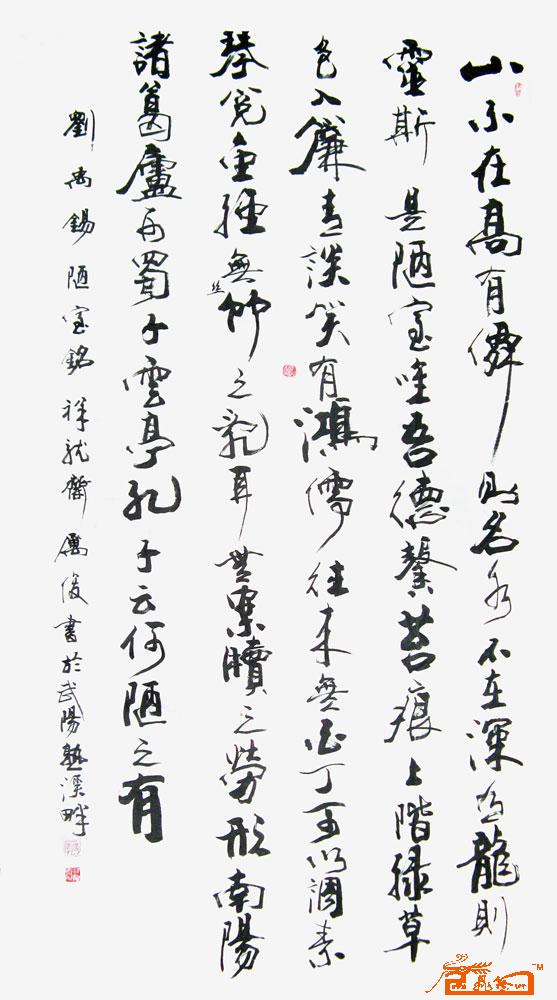 山不在高有僊則名水不在深有龍則
靈斯是陋室唯吾德馨苔痕上階綠草
色入簾青談笑有鴻儒往來無白丁可以調素
琴閱金經無絲竹之亂耳無案牘之勞形南陽
諸葛廬西蜀子雲亭孔子云何陋之有
劉禹錫陋室銘祥龍齋厲俊書於武陽熟溪畔